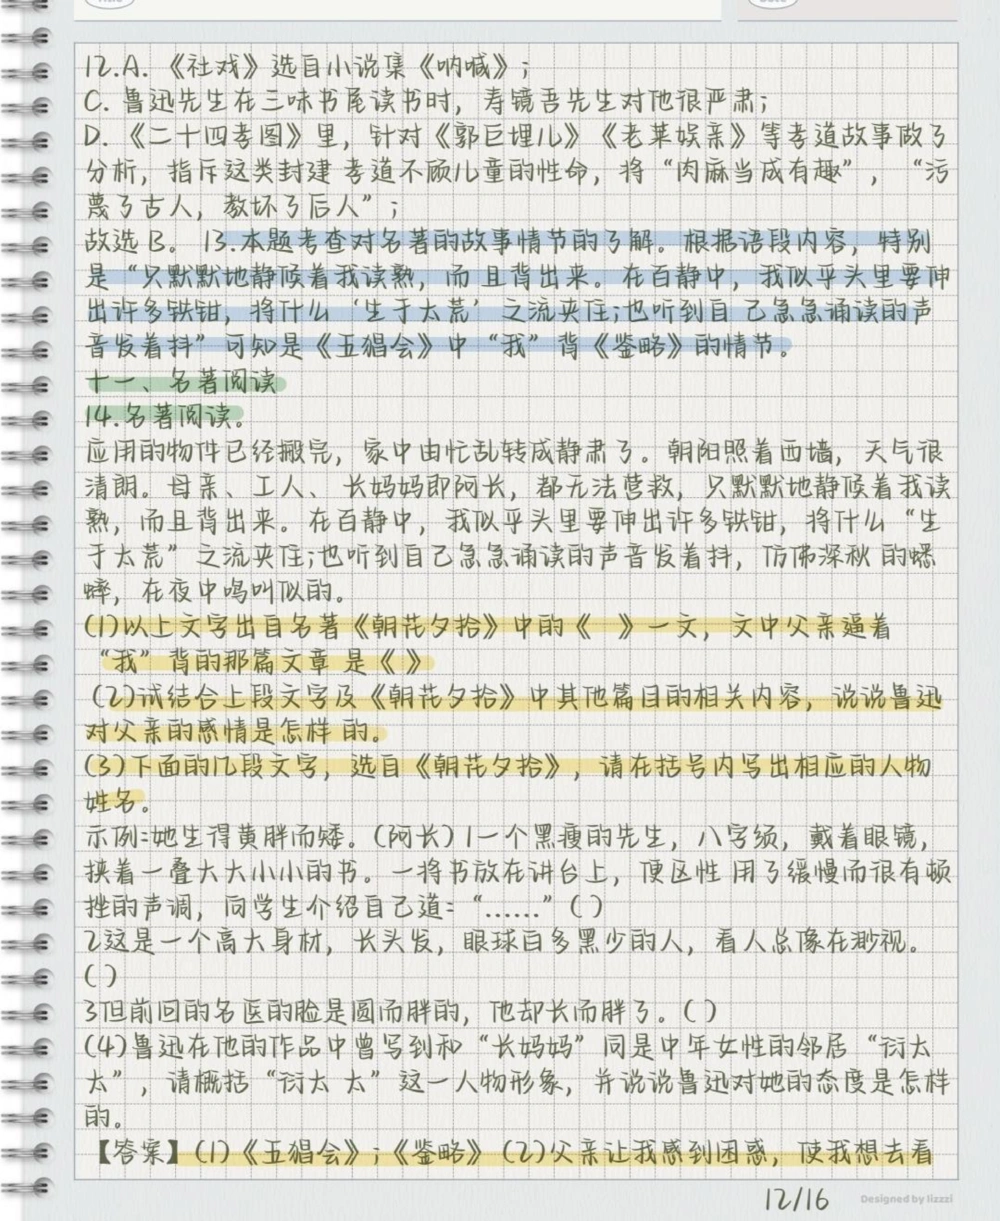 12.A.《社戏》选自小说集《呐喊》；
C. 鲁迅先生在三味书屋读书时，寿镜吾先生对他很严肃；
D.《二十四孝图》里，针对《郭巨埋儿》《老莱娱亲》等孝道故事做了
分析，指斥这类封建 孝道不顾儿童的性命，将“肉麻当成有趣”，“污
蔑了古人，教坏了后人”；
故选 B。 13.本题考查对名著的故事情节的了解。根据语段内容，特别
是“只默默地静候着我读熟，而 且背出来。在百静中，我似乎头里要伸
出许多铁钳，将什么‘生于太荒’之流夹住;也听到自 己急急诵读的声
音发着抖”可知是《五猖会》中“我”背《鉴略》的情节。
十一、名著阅读
14.名著阅读。
应用的物件已经搬完，家中由忙乱转成静肃了。朝阳照着西墙，天气很
清朗。母亲、工人、 长妈妈即阿长，都无法营救，只默默地静候着我读
熟，而且背出来。在百静中，我似乎头里要伸出许多铁钳，将什么“生
于太荒”之流夹住;也听到自己急急诵读的声音发着抖，仿佛深秋 的蟋
蟀，在夜中鸣叫似的。
(1)以上文字出自名著《朝花夕拾》中的《 》一文，文中父亲逼着
“我”背的那篇文章 是《 》
(2)试结合上段文字及《朝花夕拾》中其他篇目的相关内容，说说鲁迅
对父亲的感情是怎样 的。
(3)下面的几段文字，选自《朝花夕拾》，请在括号内写出相应的人物
姓名。
示例:她生得黄胖而矮。(阿长) 1一个黑瘦的先生，八字须，戴着眼镜，
挟着一叠大大小小的书。一将书放在讲台上，便区性 用了缓慢而很有顿
挫的声调，向学生介绍自己道:“……”( )
2这是一个高大身材，长头发，眼球白多黑少的人，看人总像在渺视。
( )
3但前回的名医的脸是圆而胖的，他却长而胖了。( )
(4)鲁迅在他的作品中曾写到和“长妈妈”同是中年女性的邻居“衍太
太”，请概括“衍太 太”这一人物形象，并说说鲁迅对她的态度是怎样
的。
【答案】(1)《五猖会》；《鉴略》 (2)父亲让我感到困惑，使我想去看
12/16
Designed by lizzzi